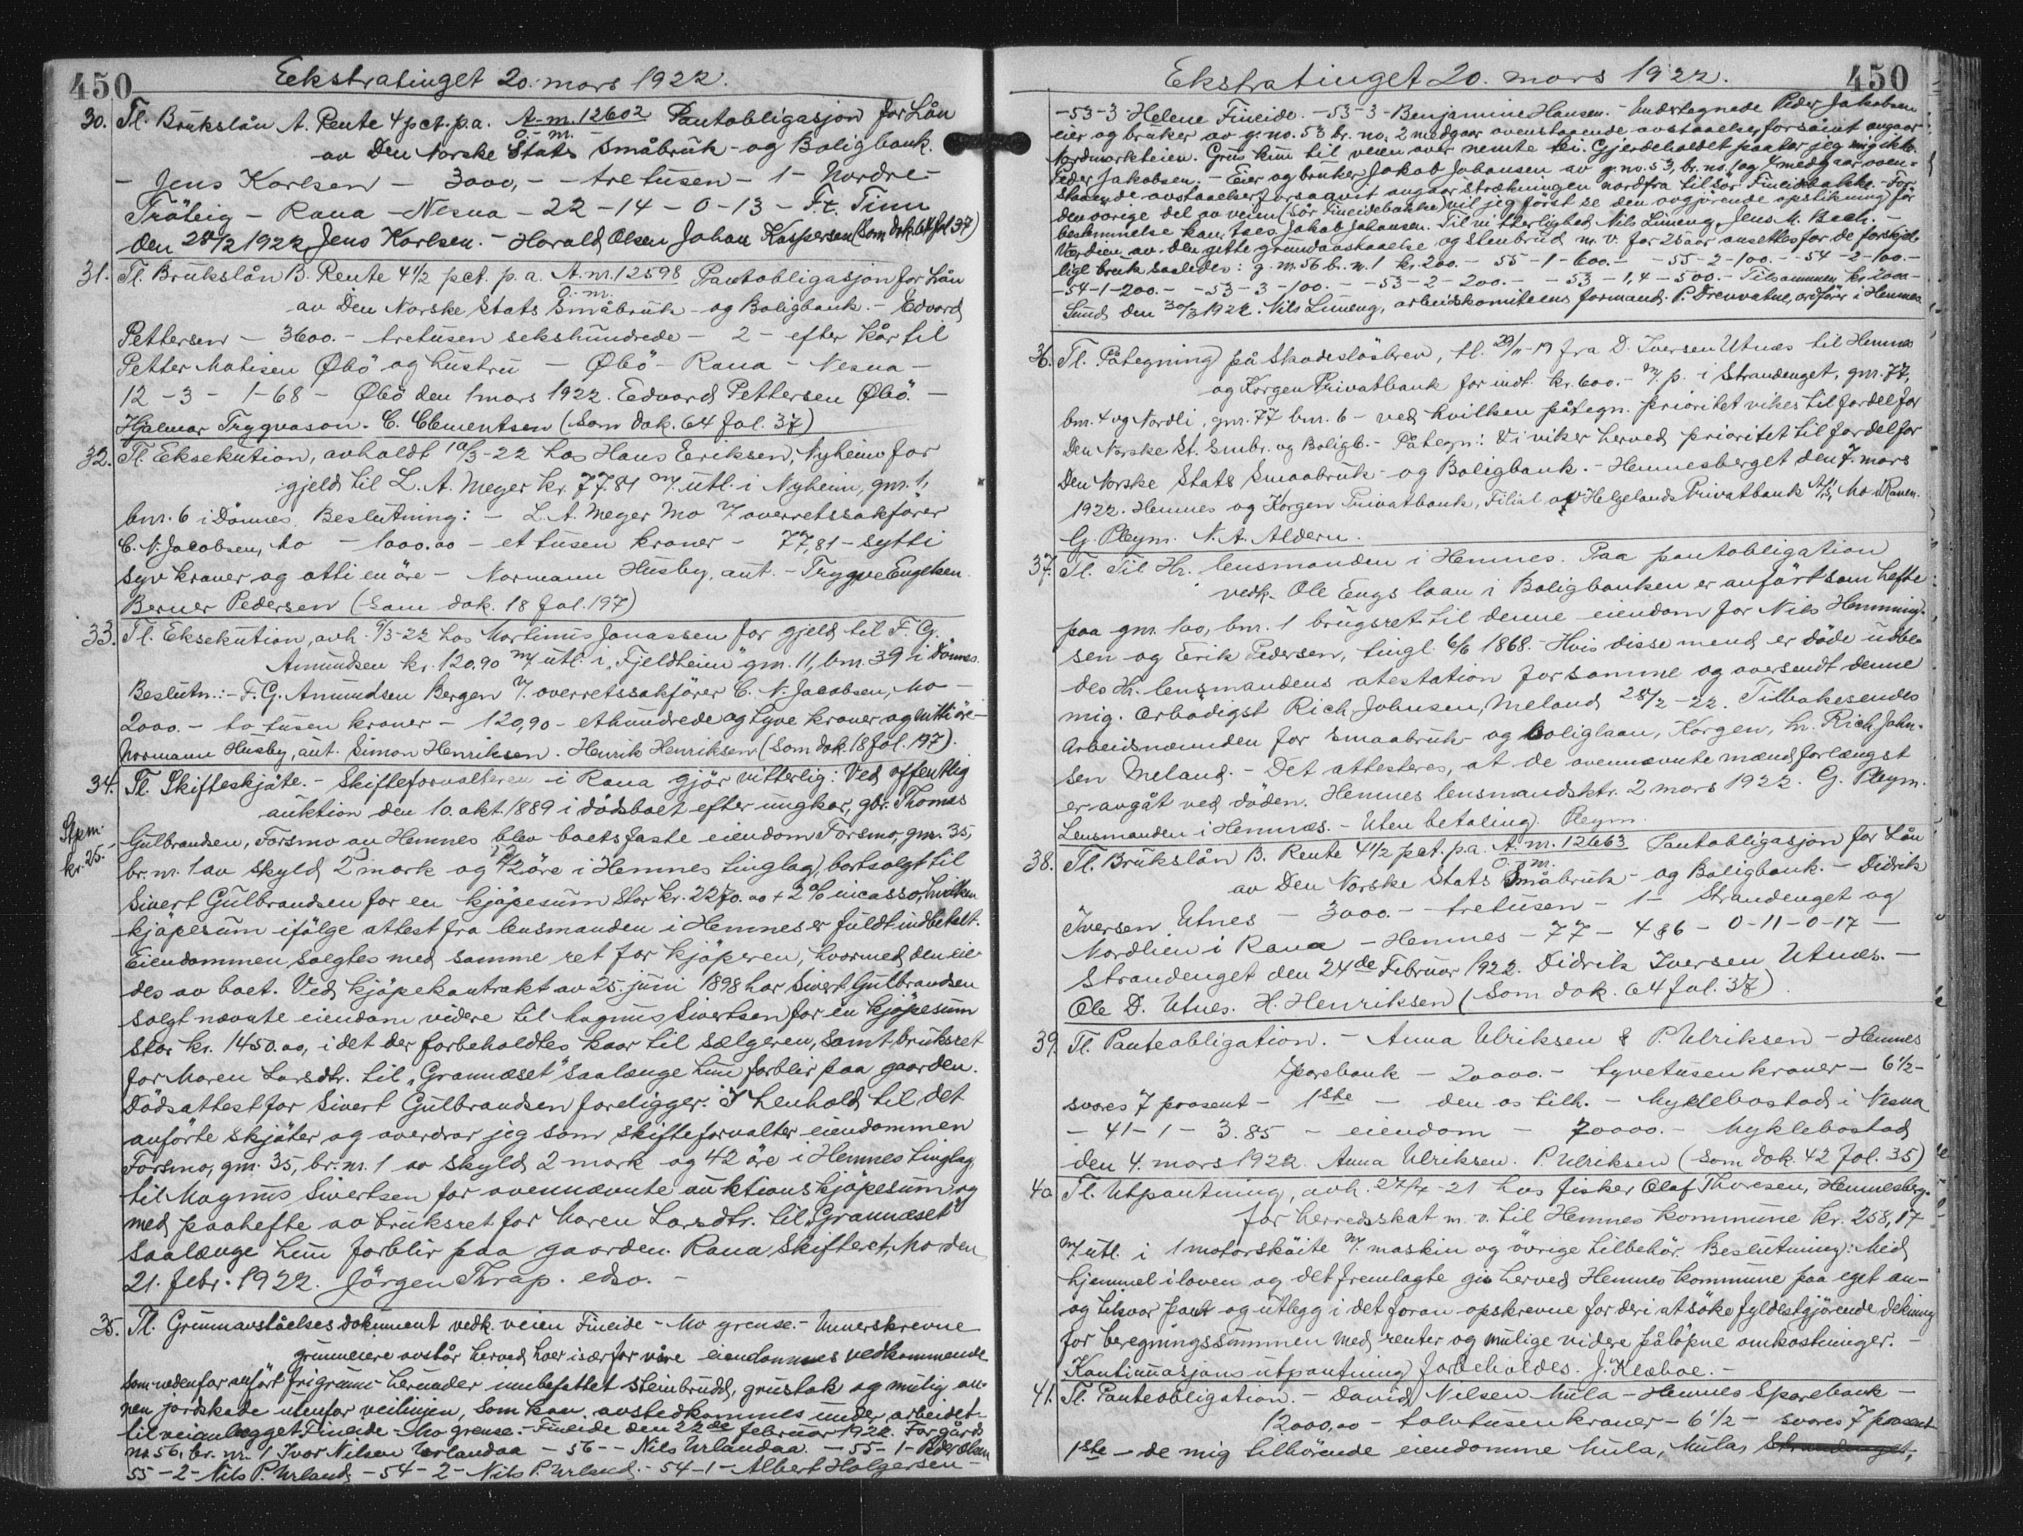 450
Eekstratinget 20. mars 1922.
30. Tl. Brukslån A. Rente 4 pct. p.a. A-nr. 12602 Pantobligasjon for Lån
O.-m.
av Den Norske Stats Småbruk- og Boligbank.
- Jens Karlsen - 3000,- - tretusen - 1 - Nordre
Tråteig - Rana - Nesna - 22 - 14 - 0-13 - Ft. Tinn
den 28/2 1922 Jens Karlsen. - Harald Olsen Johan Kaspersen (Som dok. 64 fol 37)
31. Tl. Brukslån B. Rente 4 1/2 pct. p.a. A.nr. 12598 Pantobligasjon for Lån
O.-m.
av Den Norske Stats Småbruk- og Boligbank. - Edvard
Pettersen - 3600.- tretusen sekshundrede - 2 - efter kår til
Petter Matisen Øbö og hustru - Øbö - Rana - Nesna -
12 - 3 - 1-68 - Øbö den 1 mars 1922. Eedvard Pettersen Øbö. -
Hjalmar Trygvason. C. Clementsen (Som dok. 64 fol. 37)
32. Tl. Eeksekution, avholdt 10/3-22 hos Hans Eriksen, Nyheim for
gjeld til L. A. Meyer kr. 77.81 m/ utl. i Nyheim, gnr. 1,
bnr. 6 i Dönnes. Beslutning: - L. A. Meyer Mo v/ overretssakförer
C. N. Jacobsen, Mo - 1000.00 - et tusen kroner - 77,81 - sytti
syv kroner og otti en öre - Normann Husby, aut. - Trygve Engelsen
Berner Pedersen (Som dok. 18 fol. 197)
33. Tl. Eksekution, avh. 9/3-22 hos Mortinus Jonassen for gjeld til F. G.
Amundsen kr. 120,90 m/ utl. i „Fjeldheim" gnr. 11, bnr. 39 i Dönnes.
Beslutn.: - F. G. Amundsen Bergen v/ overretssakförer C. N. Jacobsen, Mo -
2000.- to tusen kroner - 120,90 - ethundrede og tyve kroner og nitti öre -
Normann Husby, aut. Simon Henriksen. Henrik Henriksen (Som dok. 18 fol. 197).
34. Tl. Skifteskjöte. - Skifteforvalteren i Rana gjör vitterlig: Ved offentlig
auktion den 10. okt. 1889 i dödsboet efter ungkar, gbr. Thomas
Stpm.
kr. 25.-
Gulbrandsen, Forsmo av Hemnes blev boets faste eiendom Forsmo, gnr. 35,
br. nr. 1 av skyld 2 mark og 42 öre i Hemnes tinglag, bortsolgt til
Sivert Gulbrandsen for en kjöpesum stor kr. 2270.00 + 2% incasso, hvilken
kjöpesum ifölge attest fra lensmanden i Hemnes er fuldt indbetalt.
Eiendommen solgtes med samme ret for kjöperen, hvormed den eie-
des av boet. Ved kjöpekontrakt av 25. juni 1898 har Sivert Gulbrandsen
solgt nævnte eiendom videre til Magnus Sivertsen for en kjöpesum
stor kr. 1450.00, i det der forbeholdtes kaar til sælgeren, samt bruksret
for Maren Larsdtr. til „Grannæset" saalænge hun forblir paa gaarden.
Dödsattest for Sivert Gulbrandsen foreligger. I henhold til det
anförte skjöter og overdrar jeg som skifteforvalter eiendommen
Forsmo, gnr. 35, br. nr. 1 av skyld 2 mark og 42 öre i Hemnes tinglag
til Magnus Sivertsen for ovennævnte auktionskjöpesum og
med paahefte av bruksret for Maren Larsdtr. til „Grannæset"
saalænge hun forblir paa gaarden. Rana Skifteret, Mo den
21. febr. 1922. Jörgen Thrap. edso. -
35. Tl. Grunnavståelsesdokument vedk. veien Fineide - Mo grense. - Unnerskrevne
grunneiere avstår herved hver især for våre eiendommes vedkommende
som nedenfor anfört frigrunn herunder innbefattet stenbrudd, grustak og mulig an-
nen jordskade utenfor veilinjen, som kan avstedkommes under arbeidet
til veianlegget Fineide - Mo grense. - Fineide den 22de februar 1922. For gårds
nr. 56, br. nr. 1 Ivar Nilsen Urlandaa - 56 - - Nils Urlandaa - 55 - 1 -
55 - 2 - Nils P. Urland. - 54 - 2 - Nils P. Urland. - 54 - 1 - Albert Holgersen -
450
Ekstratinget 20. mars 1922.
-53-3- Helene Fineide. -53-3- Benjamine Hansen. - Undertegnede Peder Jakobsen
eier og bruker av g. no. 53 br. no. 2 medgaar ovenstaaende avstaaelse forsåvit angaar
Nordmarkteien. Grus kun til veien over nemte tei. Gjerdeholdet paatar jeg mig ikke.
Peder Jakobsen. - Eier og bruker Jakob Johansen av g. no. 53, br. no. 1 og 4 medgaar oven-
staaende avstaaelse forsaavit angaar strækningen nordfra til Sör Fineidbakke. - For
den övrige del av veien (Sör Fineidebakke) vil jeg först se den avgjörende opstikning för
bestemmelse kan taes Jakob Johansen. Til vitterlighed Nils Limeng Jens M. Bech. -
Værdien av den gitte grundavstaaelse og stenbrud m. v. for 25 aar ansettes for de forskjel-
lige bruk saaledes: g. nr. 56 b. n. 1 kr. 200.- 55 - 1 - 600.- - 55 - 2 - 100.- 54 - 2 - 100.-
- 54 - 1 - 200.- - 53 - 3 - 100.- - 53 - 2 - 200.- - 53 - 1,4 - 500.- Tilsammen kr. 2000 -
Sund den 30/3 1922. Nils Limeng, arbeidskomiteens formand. P. Drevvatne, ordförer i Hemnes
36. Tl. Påtegning på Skadeslösbrev, tl. 29/11-19 fra D. Iversen Utnæs til Hemnes
og Korgen Privatbank for indt. kr. 600.- m/ p. i Strandenget, gnr. 77,
bnr. 4 og Nordli, gnr. 77 bnr. 6 - ved hvilken påtegn. prioritet vikes til fordel for
Den Norske St. Smbr. og Boligb. - Påtegn.: Vi viker herved prioritet til fordel for
Den Norske Stats Smaabruk- og Boligbank. - Hemnesberget den 7. mars
1922. Hemnes og Korgen Privatbank, Filial av Helgelands Privatbank A/S, Mo i Ranen.
G. Pleym. N. A. Aldern.
37. Tl. Til Hr. lensmanden i Hemnes. Paa pantobligation
vedk. Ole Engs laan i Boligbanken er anfört som hefte:
paa gnr. 100, bnr. 1 brugsret til denne eiendom for Nils Henning-
sen og Erik Pedersen, tingl. 6/6 1868. Hvis disse mend er döde udbe-
des Hr. lensmandens atestation for samme og oversendt denne
mig. Ærbödigst Rich. Johnsen, Meland 28/2-22. Tilbakesendes
Arbeidsnemnden for Smaabruk- og Boliglaan, Korgen, hr. Rich. John-
sen Meland. - Det attesteres, at de ovennævnte mænd forlængst
er avgåt ved döden. Hemnes lensmandsktr. 2 mars 1922. G. Pleym.
Lensmanden i Hemnes. - Uten betaling. Pleym.
38. Tl. Brukslån B. Rente 4 1/2 pct. p.a. A. nr. 12663 Pantobligasjon for Lån
O.-m.
av Den Norske Stats Småbruk- og Boligbank. - Didrik
Iversen Utnes - 3000.- - tretusen - 1 - Strandenget og
Nordlien i Rana - Hemnes - 77 - 4 & 6 - 0-11-0-17 -
Strandenget den 24de Februar 1922. Didrik Iversen Utnæs. -
Ole D. Utnes. H. Henriksen (Som dok. 64 fol. 37).
39. Tl. Panteobligation. - Anna Ulriksen & P. Ulriksen - Hemnes
Sparebank - 20000.- tyvetusen kroner - 6 1/2 -
svares 7 prosent - 1ste - den os tilh. - Myklebostad i Nesna
- 41 - 1 - 3.85 - eiendom - 70000.- Myklebostad
den 4. mars 1922. Anna Ulriksen. P. Ulriksen (Som dok. 42 fol. 35)
40 Tl. Utpantning, avh. 27/7-21 hos fisker Olaf Thoresen, Hemnesberg.
for herredsskat m. v. til Hemnes kommune kr. 258,17
m/ utl. i 1 motorsköite m/ maskin og övrige tilbehör. Beslutning: Med
hjemmel i loven og det fremlagte gis herved Hemnes kommune paa eget an-
og tilsvar pant og utlegg i det foran opskrevne for deri at söke fyldestgjörende dekning
for beregningssummen med renter og mulige videre påløpne omkostninger. -
Kontinuasjonsutpantning forbeholdes. J. Klæboe. -
41. Tl. Panteobligation. - David Nilsen Mula - Hemnes Sparebank -
12000,00 - tolvtusen kroner - 6 1/2 - svares 7 prosent
1ste - de mig tilhörende eiendomme Mula, Mula, Strandenget,